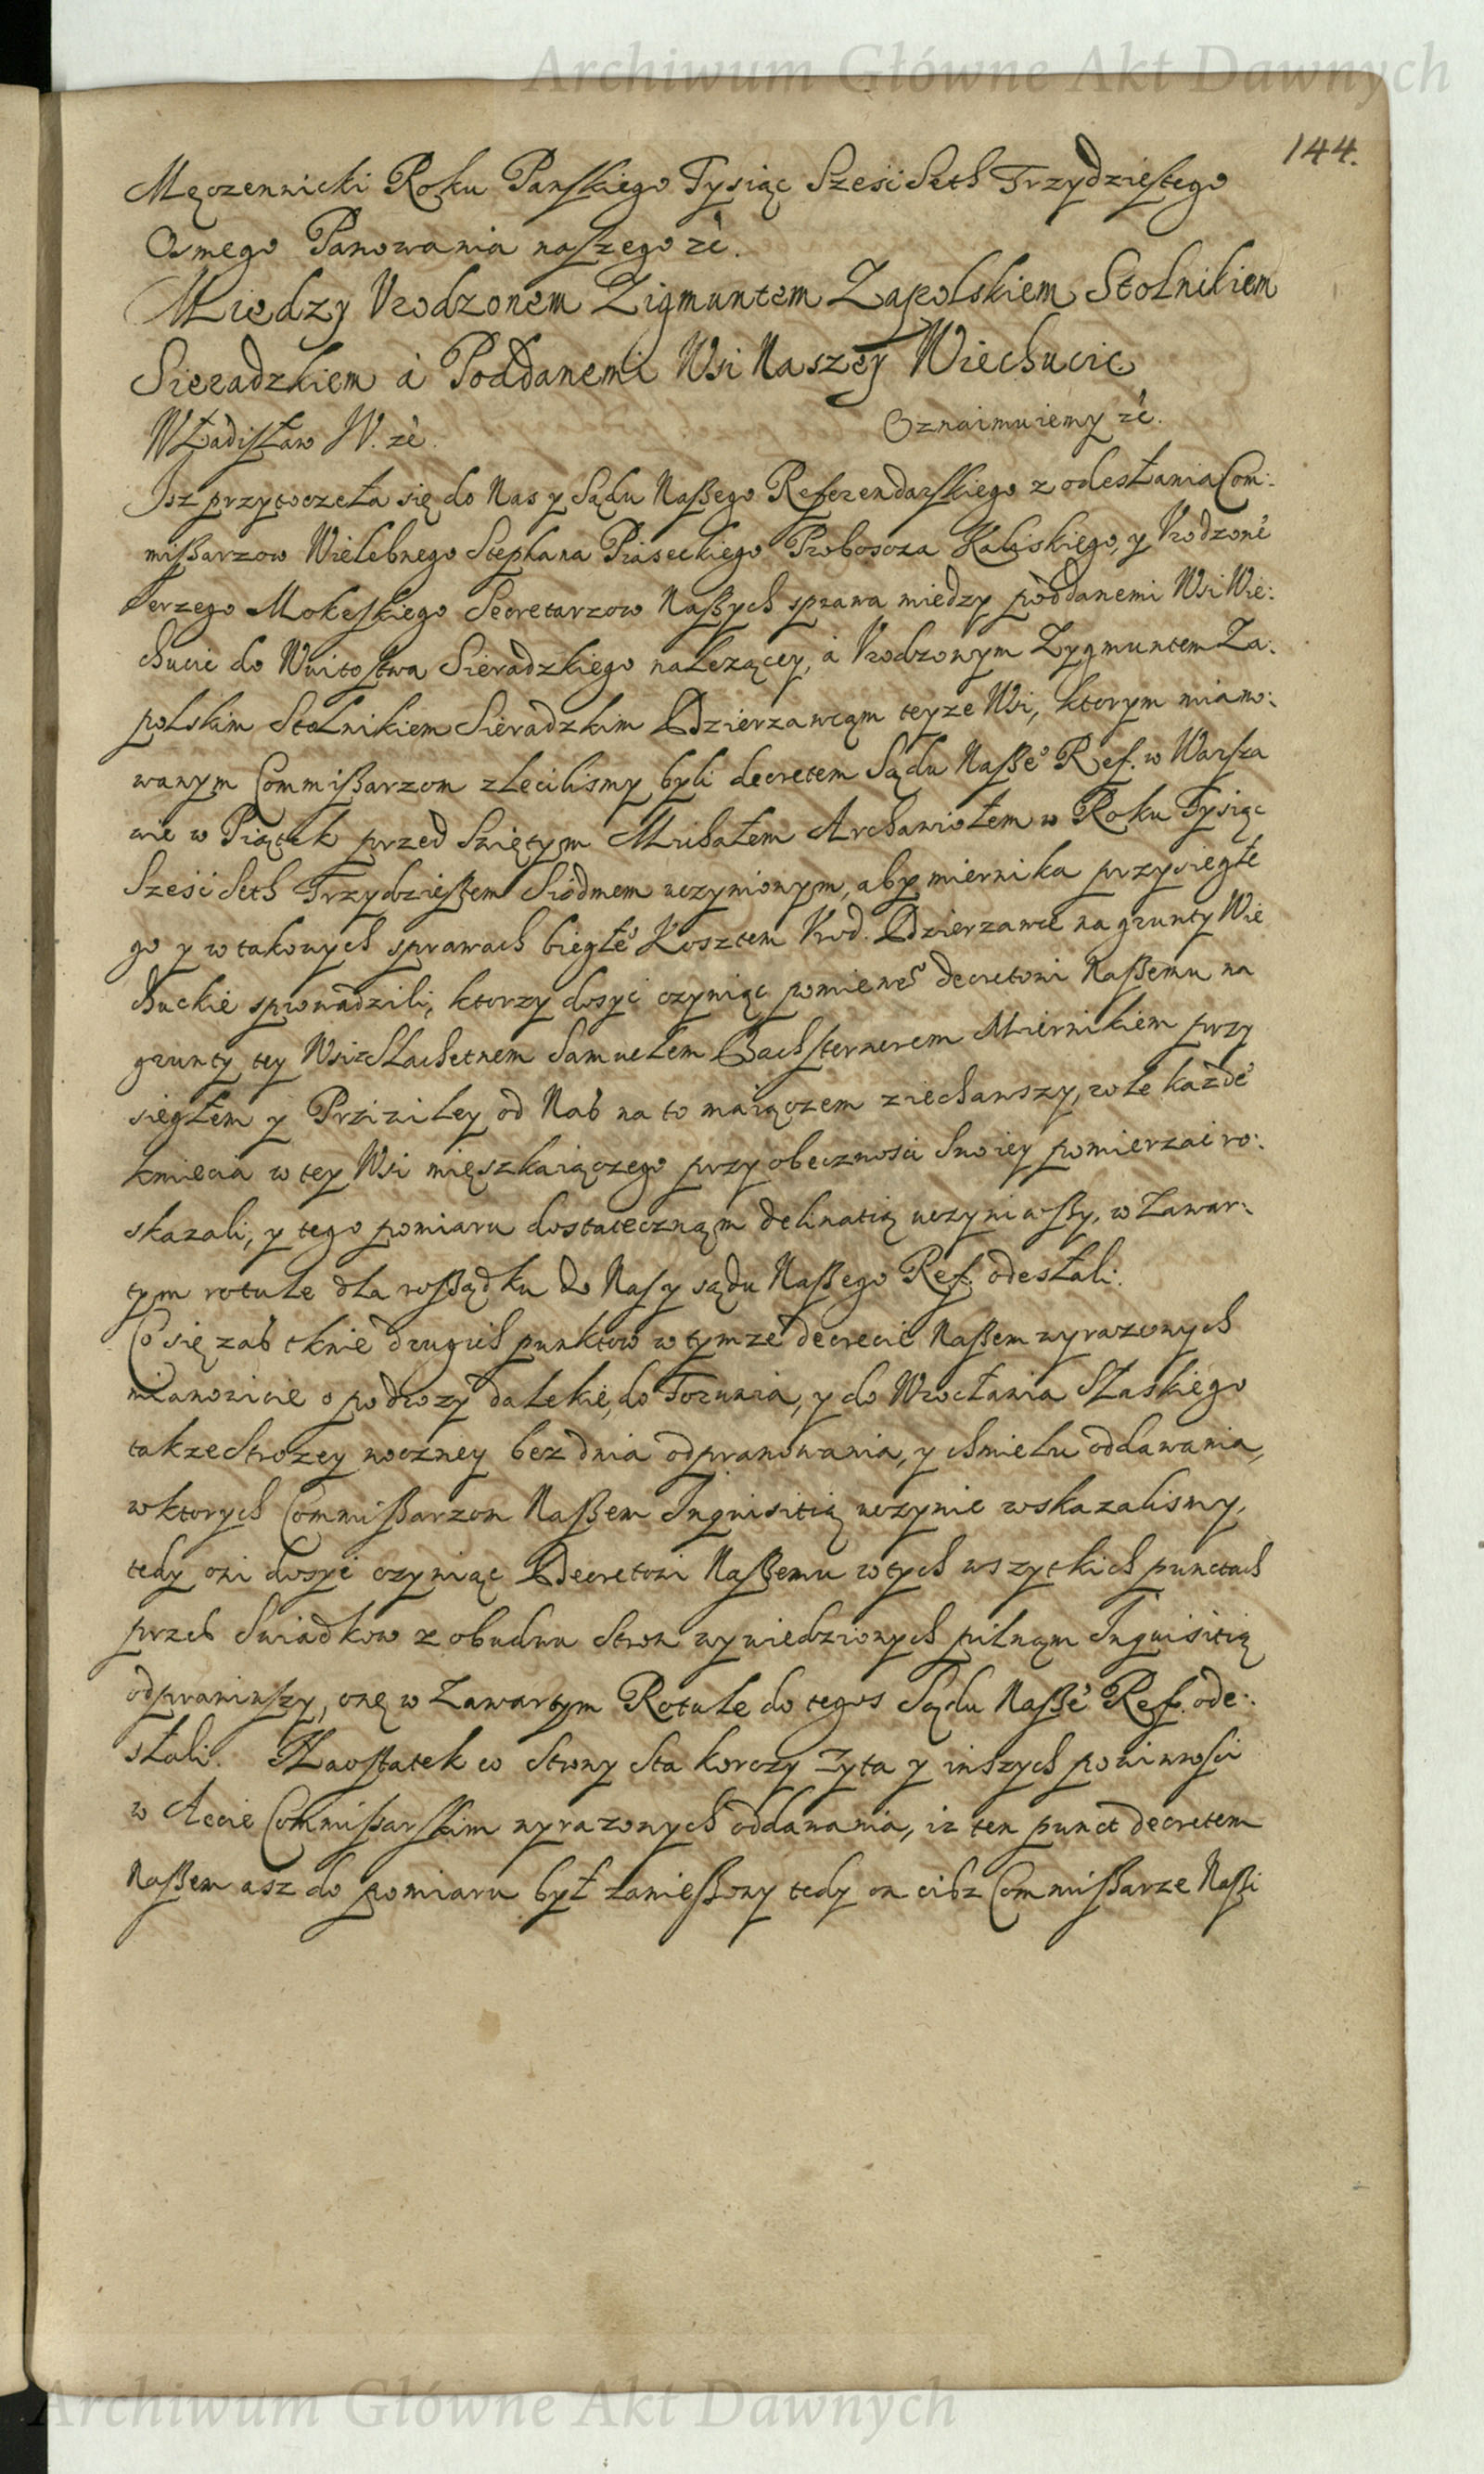 Archiwum Główne Akt Dawnych
144.
Męczennicki Roku Panskiego Tysiąc Sześć Seth Trzydziestego
Osmego Panowania naszego ze.
Miedzy Vrodzonem Zigmuntem Zapolskiem Stolnikiem
Sieradzkiem à Poddanemi Wsi Naszey Wiechucic
Władisław IV. ze. Oznaimuiemy ze.
Isz przytoczeła się do Nas y Sądu Naßego Referendarskiego z odesłania Com:
mißarzow Wielebnego Stephana Piaseckiego Proboscza Kaliskiego, y Vrodzoné
Ierzego Mokeskiego Secretarzow Naßych sprawa miedzy poddanemi Wsi Wie:
chucic do Woitostwa Sieradzkiego nalezącey, à Vrodzonym Zygmuntem Za:
polskim Stolnikiem Sieradzkim Dzierzawcąm teyze Wsi, ktorym miano:
wanym Commißarzom zlecilismy byli decretem Sądu Naßé Ref. w Warsza
wie w Piątek przed Swiętym Michałem Archaniołem w Roku Tysiąc
Sześć Seth Trzydzießtem Siodmem uczynionym, aby miernika przysiegłe
go y w takowych sprawach biegłé Kosztem Vrod. Dzierzawce na grunty Wie
chuckie sprowadzili, ktorzy dosyć czyniąc pomiené decretowi Naßemu na
grunty tey Wsi z Slachetnem Samuelem Bachsternerem Miernikiem przy
sięgłem y Prziwiley od Nas na to maiączem ziechawszy, role każdé
kmiecia w tey Wsi mięszkaiączego przy obecznosci Swoiey pomierzać ro:
skazali, y tego pomiaru dostatecznąm delinatią uczyniwßy, w Zawar:
tym rotule dla roßądku do Nas y sądu Naßego Ref. odesłali.
Co się zaś tknie drugich punktow w tymze decrecie Naßem wyrazonych
mianowicie o podrozy dalekie, do Torunia, y do Wrocławia Sląskiego
takze Strozey noczney bez dnia odprawowania, y chmielu oddawania,
w ktorych Commißarzom Naßem Inquisitią uczynic wskazalismy,
tedy oni dosyć czyniąc Decretowi Naßemu w tych wszytkich punctach
przes Swiadkow z obudwu stron wywiedzionych pilnąm Inquisitią
odprawiwszy, onę w Zawartym Rotule do tegos Sądu Naßé Ref. ode:
słali. Naostatek co strony sta korczy zyta y inszych powinnosci
w Akcie Commißarskim wyrazonych oddawania, iz ten punct decretem
Naßem asz do pomiaru był zawießony tedy on cisz Commißarze Naßi
Archiwum Główne Akt Dawnych